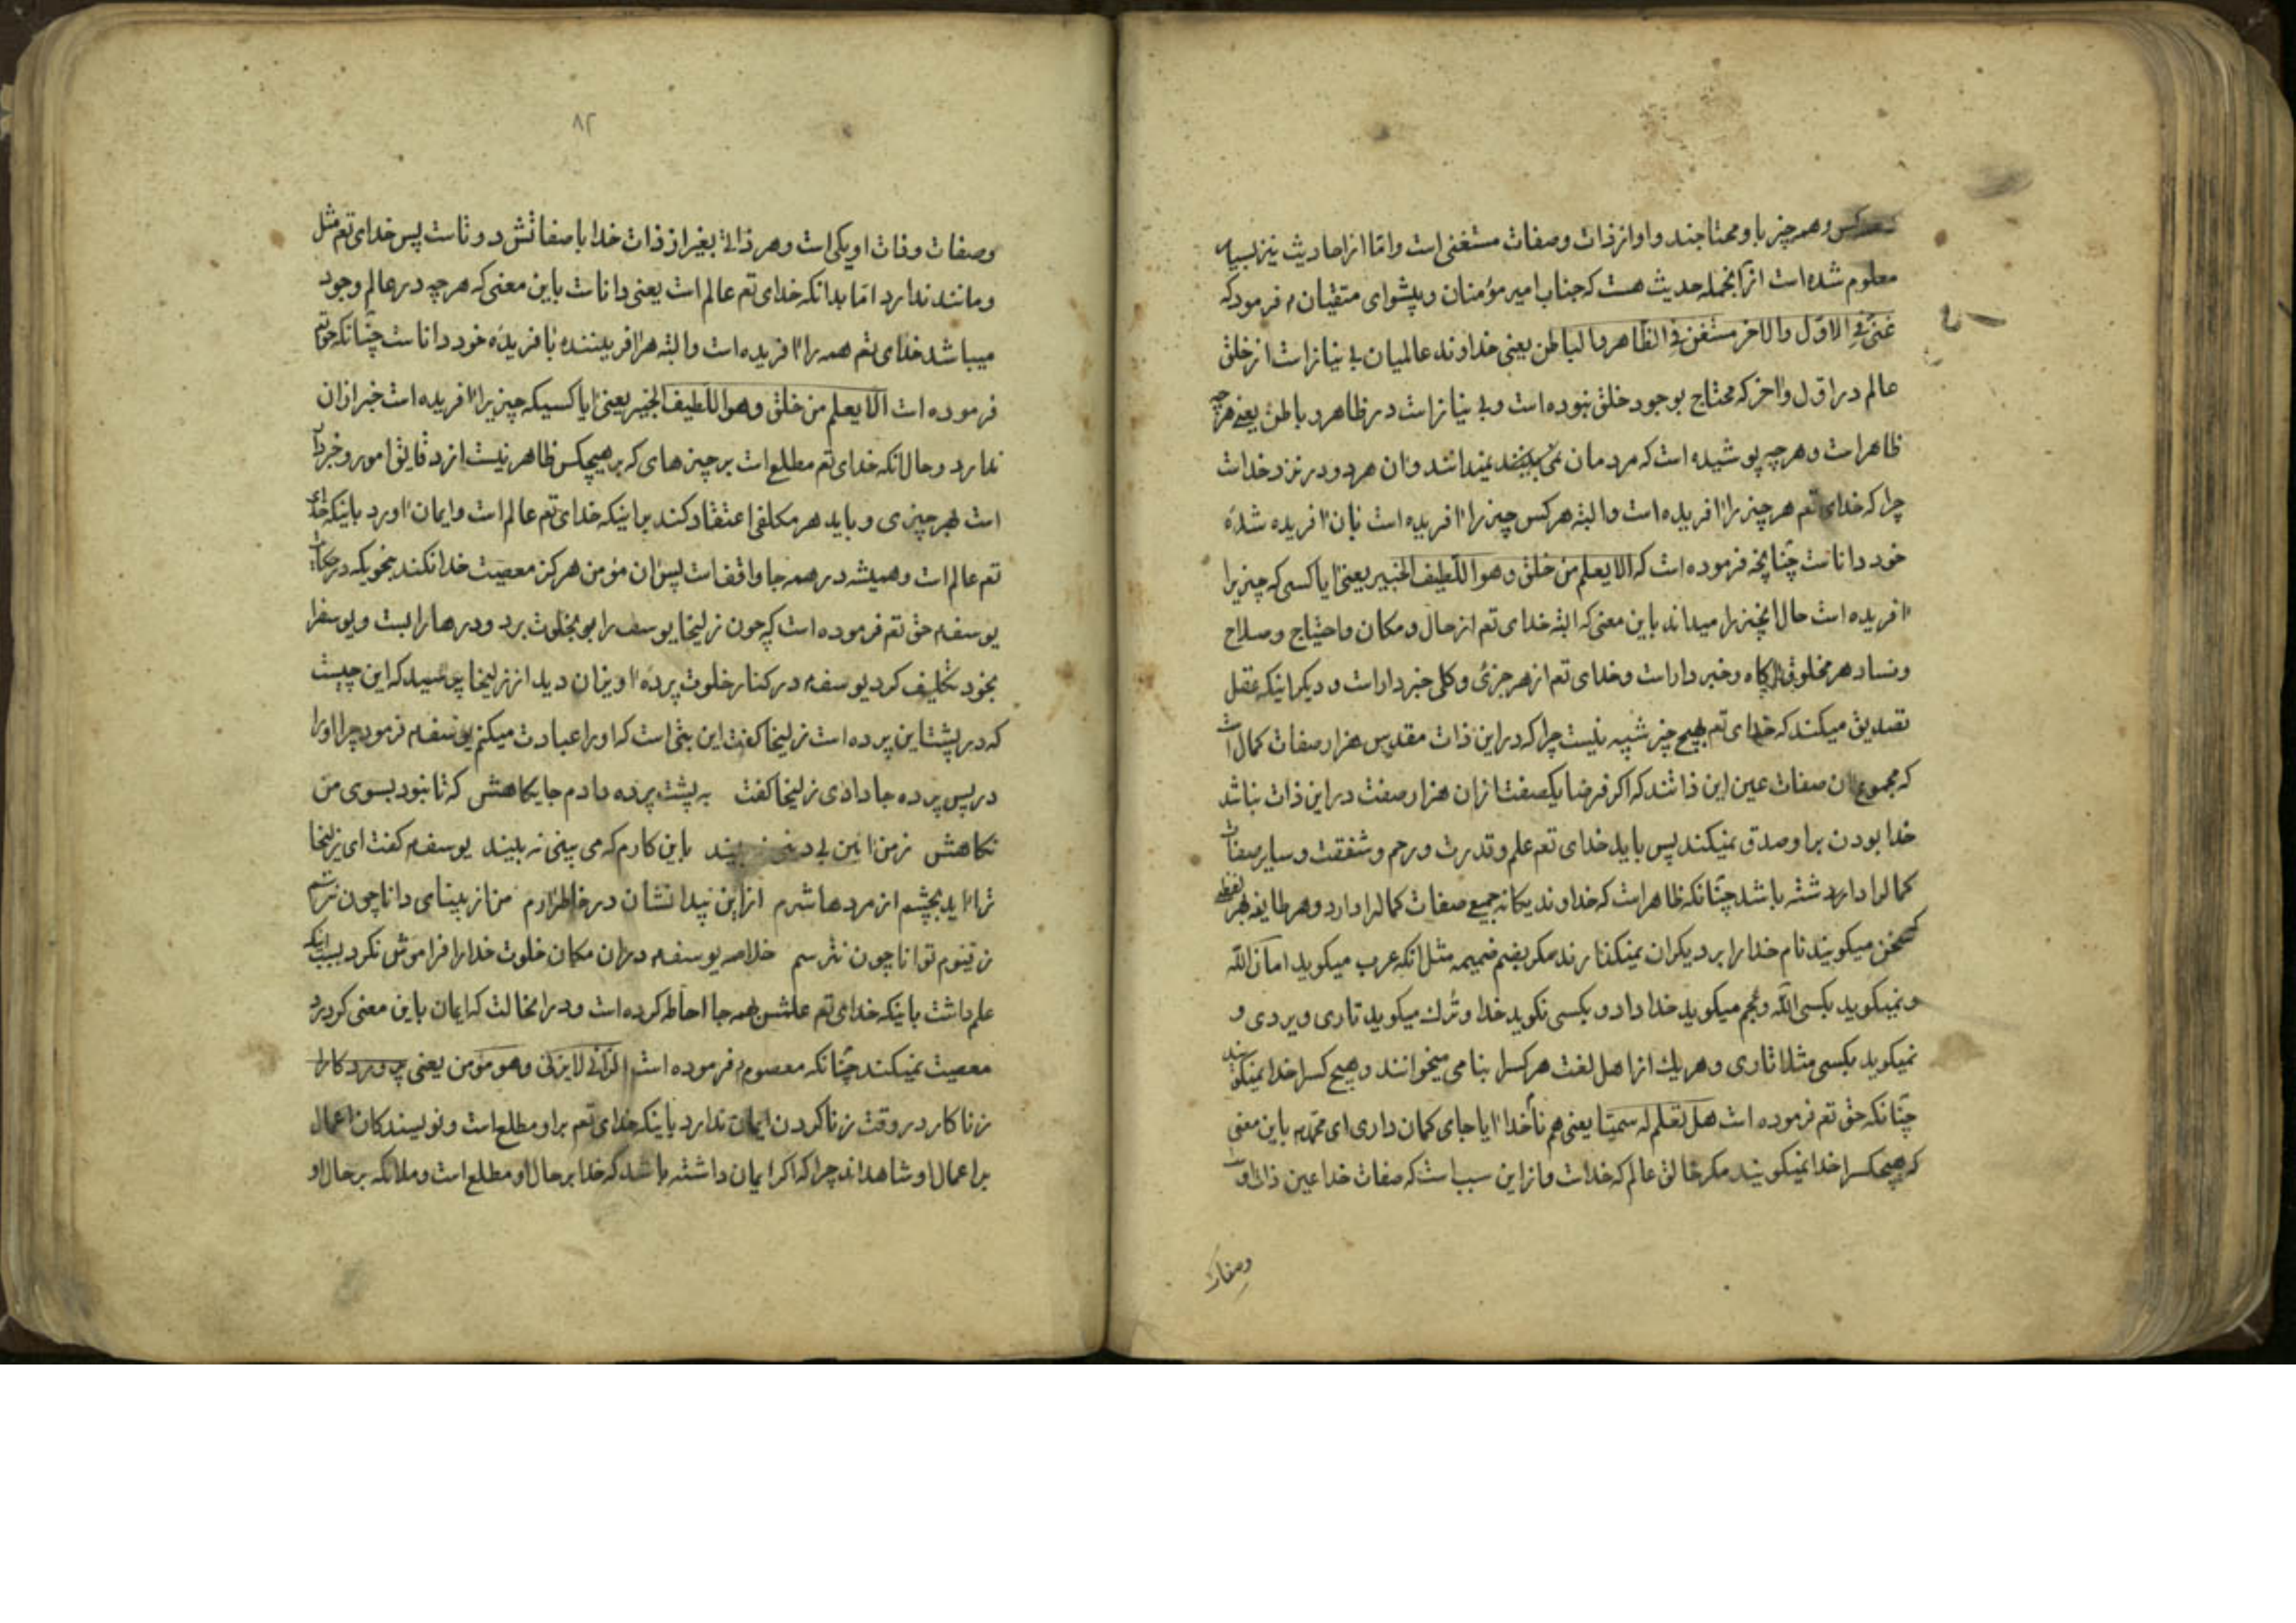 همه کس و همه چیز باو محتاجند و او از ذات و صفات مستغنی است و اما از احادیث نیز بسیار
معلوم شده است از آنجمله حدیث هست که جناب امیر مؤمنان و پیشوای متقیان م فرمود که
غنی فی الاول والاخر مستغن فی الظاهر والباطن یعنی خداوند عالمیان بی نیاز است از خلق
عالم در اول و آخر که محتاج بوجود خلق نبوده است و بی نیاز است در ظاهر و باطن یعنی هرچه
ظاهر است و هرچه پوشیده است که مردمان نمی بینند نمیدانند و آن هر دو در نزد خداست
چرا که خدای تعم هر چیز را آفریده است و البته هر کس چیز را آفریده است بان آفریده شدۀ
خود داناست چنانچه فرموده است که الا یعلم من خلق و هو اللطیف الخبیر یعنی آیا کسی که چیزیرا
آفریده است حال آنچیز را میداند باین معنی که البته خدای تعم از حال و مکان و احتیاج و صلاح
و فساد هر مخلوقی آگاه و خبردار است و خدای تعم از هر جزئی و کلی خبردار است و دیگر اینکه عقل
تصدیق میکند که خدای تعم بهیچ چیز شبیه نیست چرا که در این ذات مقدس هزار صفات کمال است
که مجموع آن صفات عین این ذاتند که اگر فرضا یکصفت از آن هزار صفت در این ذات نباشد
خدا بودن بر او صدق نمیکند پس باید خدای تعم علم و قدرت و رحم و شفقت و سایر صفات
کمالرا داشته باشد چنانکه ظاهر است که خداوند یکانه جمیع صفات کمالرا دارد و هر طایفه بهر لفظی
سخن میگویند نام خدا را بر دیگران نمیگذارند مگر بضم ضمیمه مثل آنکه عرب میگوید امان الله
و نمیگوید بکسی الله و عجم میگوید خدا داد و بکسی نگوید خدا و ترک میگوید تاری ویردی و
نمیگوید بکسی مثلا تاری و هر یک از اهل لغت هر کسرا بنامی میخوانند و هیچ کسرا خدا نمیگویند
چنانکه حق تعم فرموده است هل تعلم له سمیّا یعنی هم نام خدا آیا جای کمان داری ای محمّد م باین معنی
که هیچکسرا خدا نمیگویند مگر خالق عالم که خداست و از این سبب است که صفات خدا عین ذات اوست
وصفات
۸۲
وصفات و ذات او یکی است و هر ذاتی بغیر از ذات خدا با صفاتش دوتاست پس خدای تعم مثل
و مانند ندارد اما بدانکه خدای تعم عالم است یعنی داناست باین معنی که هرچه در عالم وجود
میباشد خدای تعم همه را آفریده است و البته هر آفریننده بآفریدۀ خود داناست چنانکه حق تعم
فرموده است الا یعلم من خلق و هو اللطیف الخبیر یعنی آیا کسیکه چیزیرا آفریده است خبر از آن
ندارد و حال آنکه خدای تعم مطلع است بر چیزهای که بر هیچکس ظاهر نیست از دقایق امور و خبردار
است بهر چیزی و باید هر مکلفی اعتقاد کند براینکه خدای تعم عالم است و ایمان آورد باینکه خدای
تعم عالم است و همیشه در همه جا واقف است پس آن مؤمن هرگز معصیت خدا نکند بنحویکه در حکایت
یوسف م حق تعم فرموده است که چون زلیخا یوسف را بخلوت برد و درها را بست و یوسفرا
بخود تکلیف کرد یوسف م در کنار خلوت پردۀ آویزان دید از زلیخا پرسید که این چیست
که در پشت این پرده است زلیخا گفت این بتی است که او را عبادت میکنم یوسف م فرمود چرا او را
در پس پرده جا دادی زلیخا گفت به پشت پرده دادم جایکاهش که تا نبود بسوی من
نکاهش ز من آیین بی دینی نه بیند باین کارم که می بینی نه بیند یوسف م گفت ای زلیخا
ترا آید بچشم از مردها شرم از این نپدا نشان در خاطر آزرم من از بینای دانا چون نترسم
ز قیوم توانا چون نترسم خلاصه یوسف م در آن مکان خلوت خدا را فراموش نکرد بسبب آنکه
علم داشت باینکه خدای تعم علمش همه جا احاطه کرده است و در آنحالت که ایمان باین معنی کردن
معصیت نمیکند چنانکه معصوم م فرموده است الزانی لا یزنی وهو مؤمن یعنی پروردگارا
زناکار در وقت زنا کردن ایمان ندارد باینکه خدای تعم بر او مطلع است و نویسندگان اعمال
بر اعمال او شاهداند چرا که اگر ایمان داشته باشد که خدا بر حال او مطلع است و ملائکه بر حال او